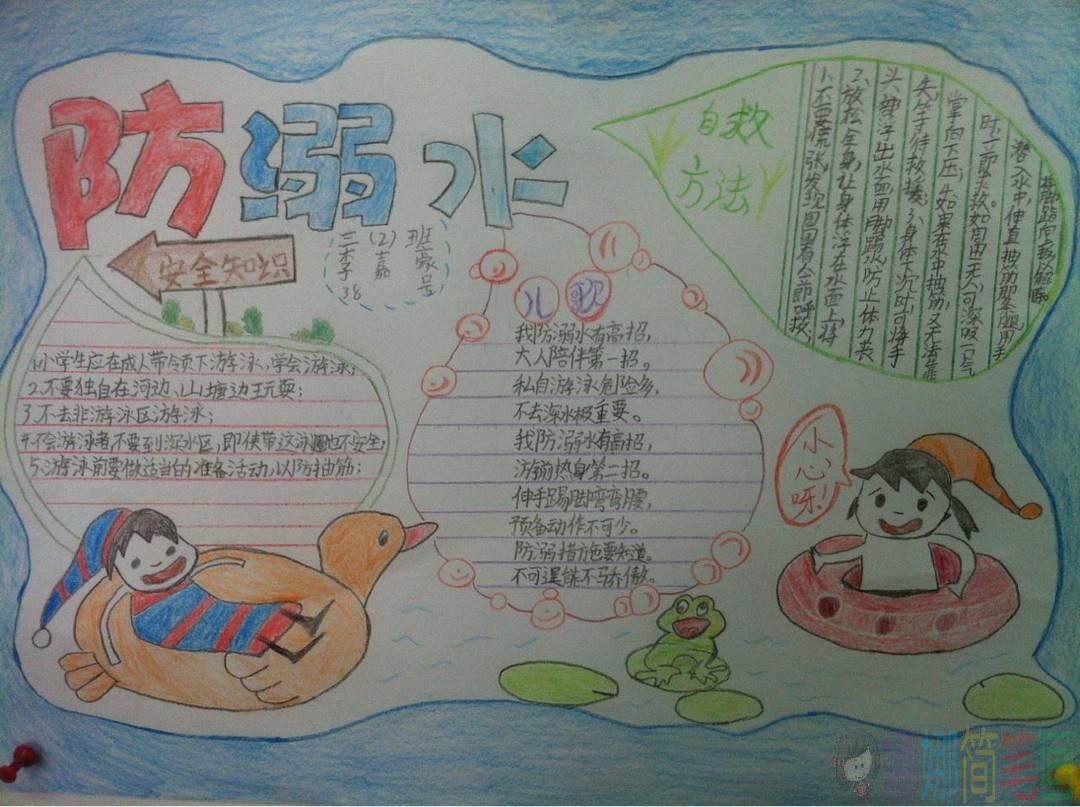 防溺水
安全知识
三(2)班
李嘉豪
38号
1.小学生应在成人带领下游泳,学会游泳;
2.不要独自在河边、山塘边玩耍;
3.不去非游泳区游泳;
4.不会游泳者,不要到深水区,即使带这泳圈也不安全;
5.游泳前要做适当的准备活动,以防抽筋;
儿歌
我防溺水有高招,
大人陪伴第一招。
私自游泳危险多,
不去深水极重要。
我防溺水有高招,
游前热身第二招。
伸手踢脚弯弯腰,
预备动作不可少。
防溺措施要知道。
不可逞能不骄傲。
自救
方法
1、不要慌张,发现周围有人立即呼救;
2、放松全身,让身体浮在水面上,将
头部浮出水面,用脚踢水,防止体力丧
失,等待救援;3、身体下沉时,可将手
掌向下压;4、如果在水中抽筋,又无法靠
时,立即求救。如周围无人,可深吸一口气
潜入水中,伸直抽筋那条腿,用手
小心呀!
娜简笔画